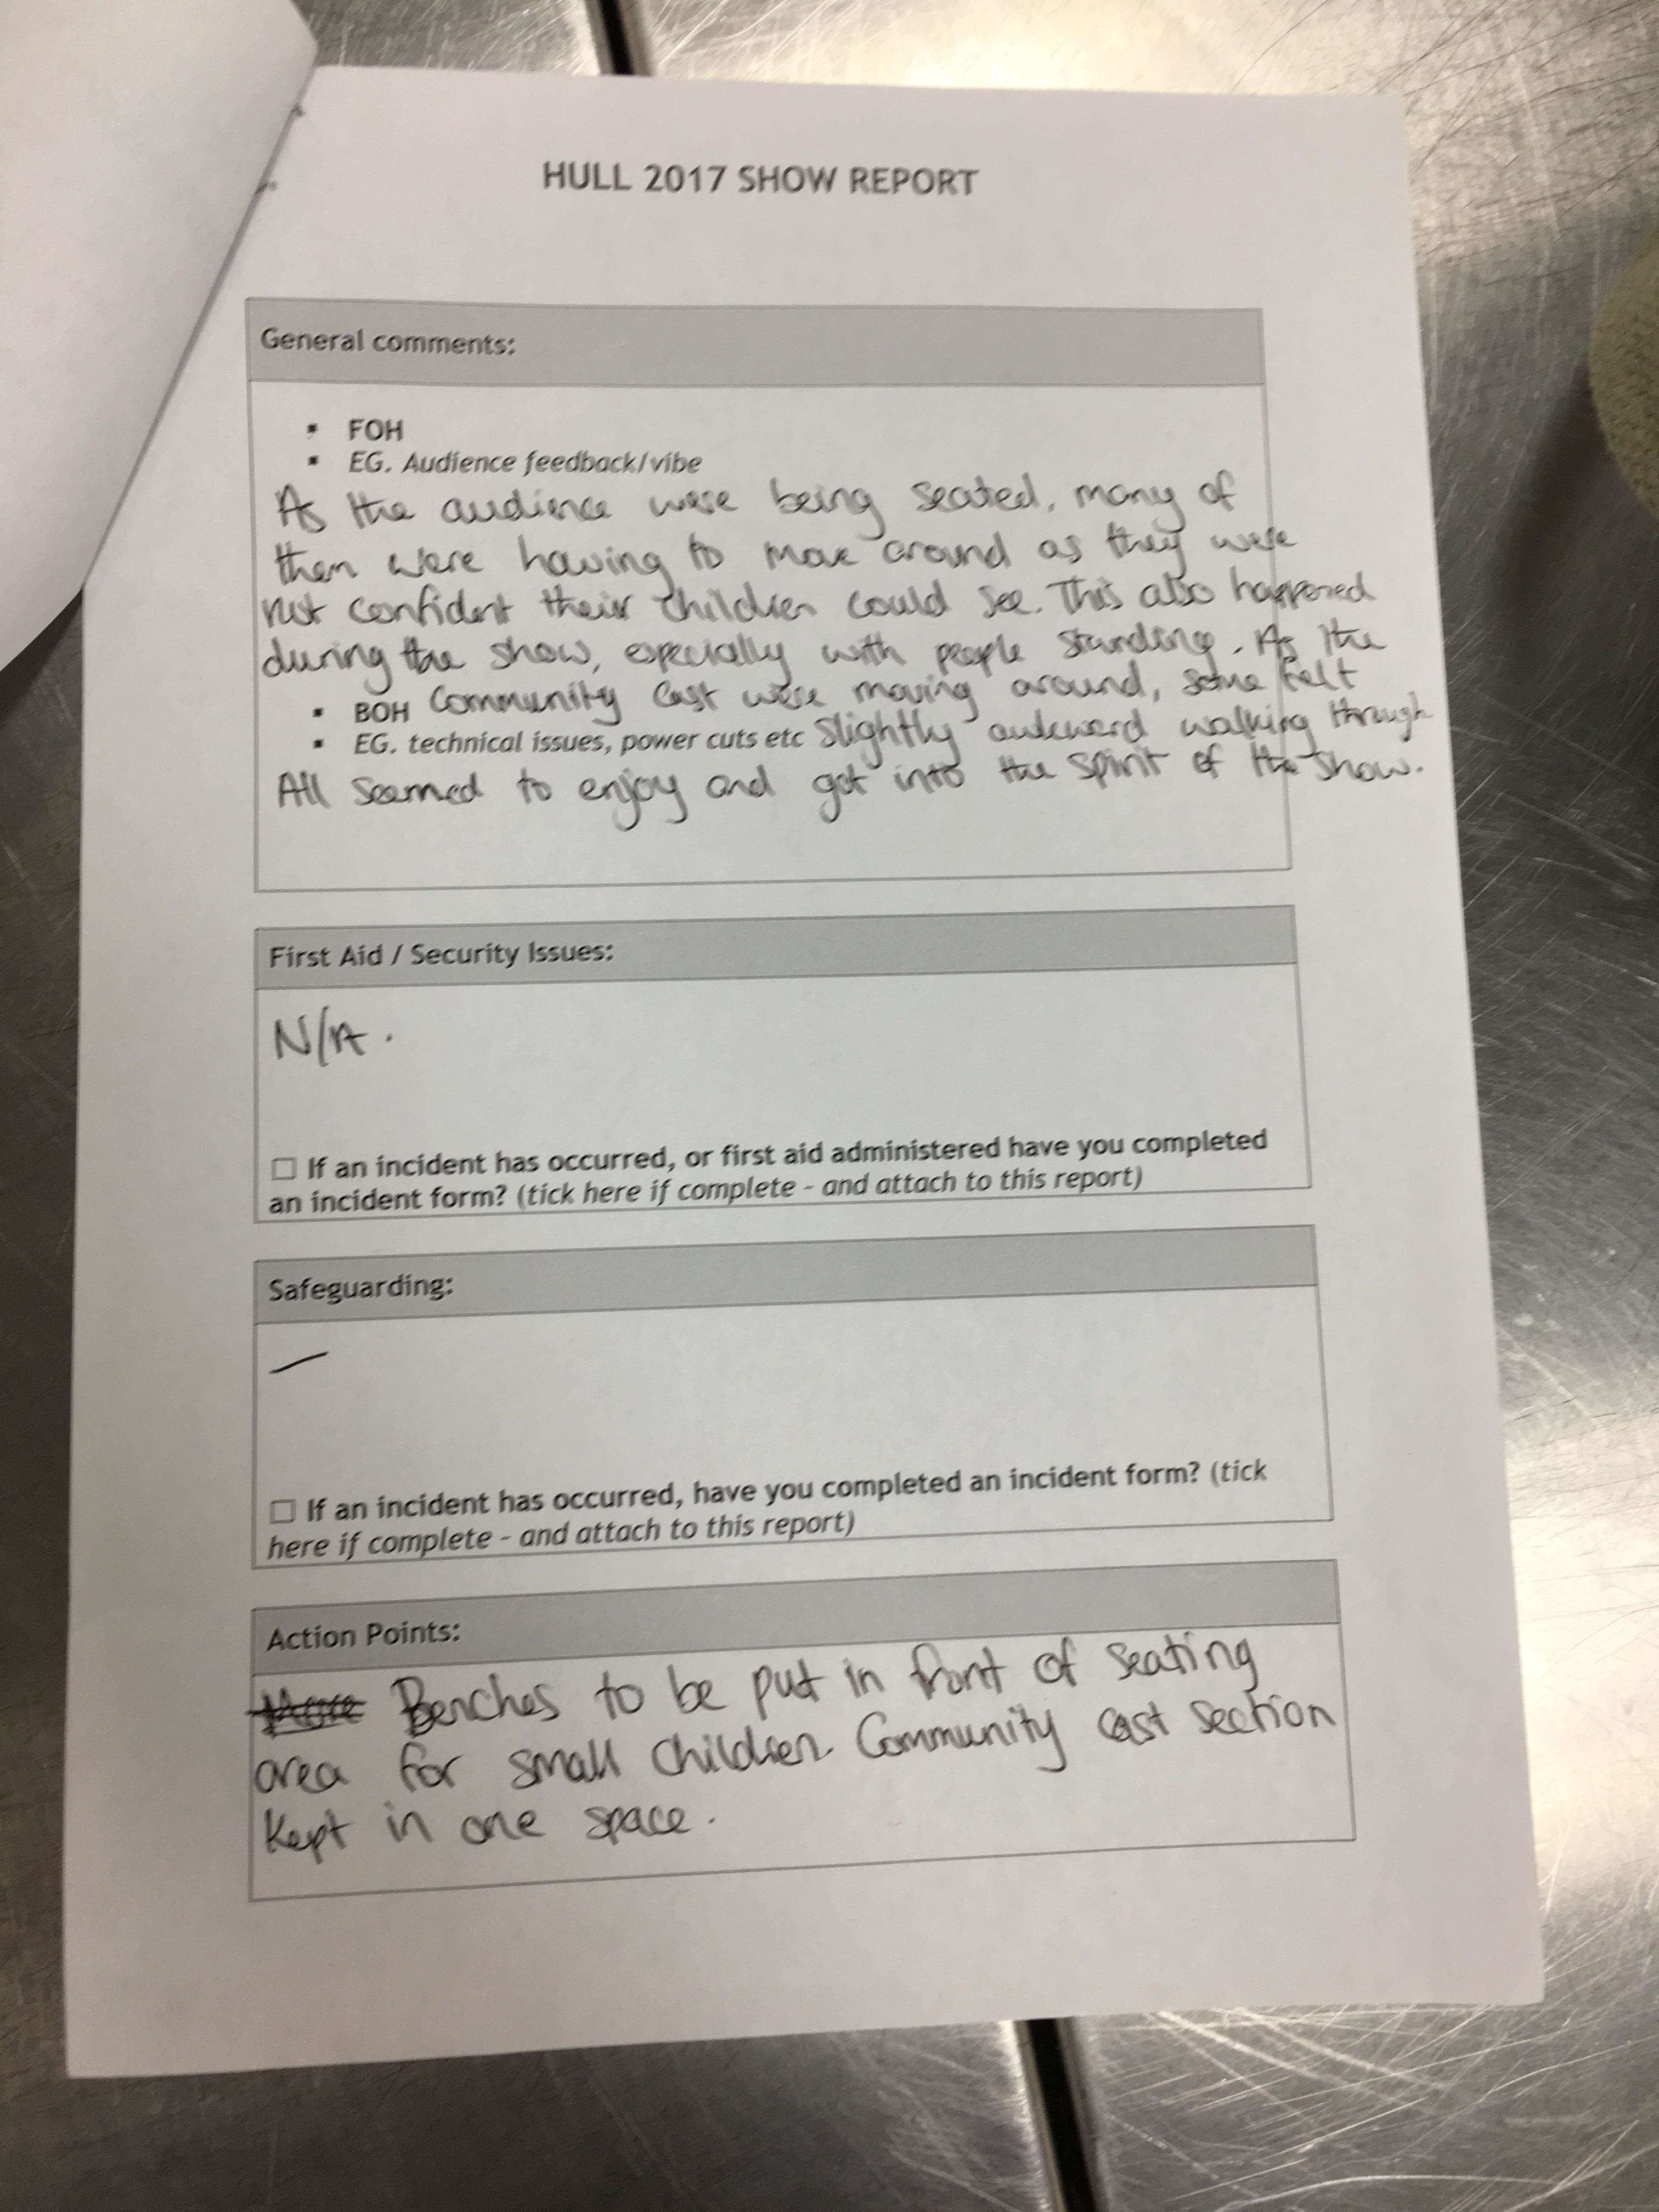 HULL 2017 SHOW REPORT
General comments:
▪ FOH
▪ EG. Audience feedback/vibe
As the audience were being seated, many of
them were having to move around as they were
not confident their children could see. This also happened
during the show, especially with people standing. As the
▪ BOH Community Cast were moving around, some felt
▪ EG. technical issues, power cuts etc slightly awkward walking through
All seemed to enjoy and got into the spirit of the show.
First Aid / Security Issues:
N/A.
☐ If an incident has occurred, or first aid administered have you completed
an incident form? (tick here if complete - and attach to this report)
Safeguarding:
—
☐ If an incident has occurred, have you completed an incident form? (tick
here if complete - and attach to this report)
Action Points:
Benches to be put in front of seating
area for small children. Community Cast section
kept in one space.